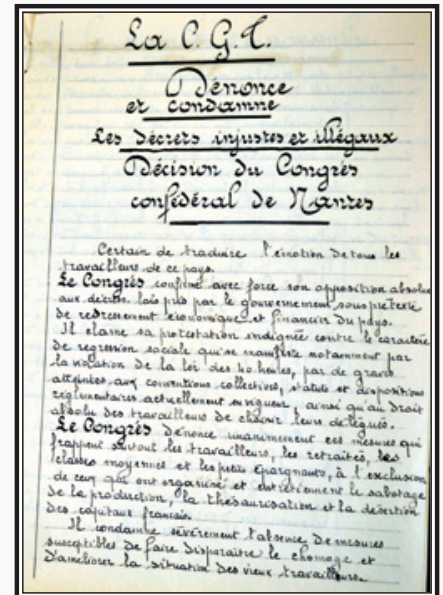 La C.G.T.
Dénonce
et condamne
Les Décrets injustes et illégaux
Décision du Congrès
confédéral de Nantes
Certain de traduire l'émotion de tous les
travailleurs de ce pays.
Le Congrès confirme avec force son opposition absolue
aux décrets lois pris par le gouvernement, sous prétexte
de redressement économique et financier du pays.
Il clame sa protestation indignée contre le caractère
de regression sociale qui se manifeste notamment par
la violation de la loi des 40 heures, par de graves
atteintes aux conventions collectives, statuts et dispositions
réglementaires actuellement en vigueur, ainsi qu'au droit
absolu des travailleurs de choisir leurs délégués.
Le Congrès dénonce unanimement ces mesures qui
frappent surtout les travailleurs, les retraités, les
classes moyennes et les petits épargnants, à l'exclusion
de ceux qui ont organisé et entretiennent le sabotage
de la production, la thésaurisation et la désertion
des capitaux français.
Il condamne sévèrement l'absence de mesures
susceptibles de faire disparaître le chomage et
d'améliorer la situation des vieux travailleurs.